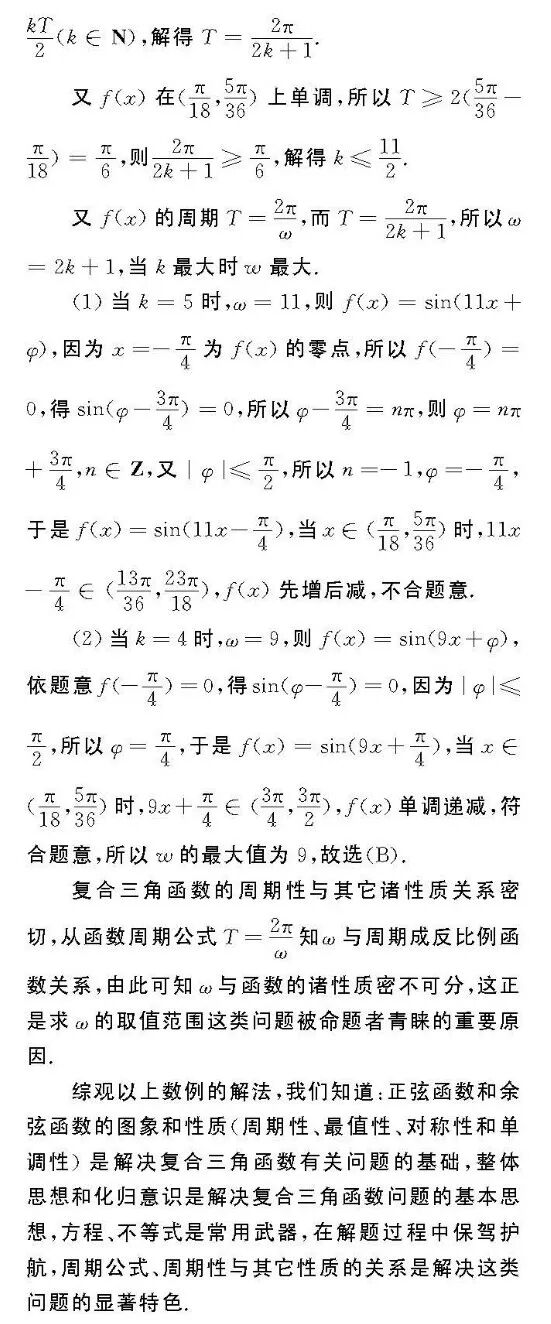 kT/2(k ∈ N),解得 T = 2π/(2k+1).
又 f(x) 在(π/18,5π/36) 上单调,所以 T ⩾ 2(5π/36 −
π/18) = π/6,则2π/(2k+1) ⩾ π/6,解得 k ⩽ 11/2.
又 f(x) 的周期 T = 2π/ω,而 T = 2π/(2k+1),所以 ω
= 2k + 1,当 k 最大时 w 最大.
(1) 当 k = 5 时,ω = 11,则 f(x) = sin(11x +
φ),因为 x =− π/4 为 f(x) 的零点,所以 f(− π/4) =
0,得 sin(φ − 3π/4) = 0,所以 φ − 3π/4 = nπ,则 φ = nπ
+ 3π/4,n ∈ Z,又 | φ |⩽ π/2,所以 n =− 1,φ =− π/4,
于是 f(x) = sin(11x − π/4),当 x ∈ (π/18,5π/36) 时,11x
− π/4 ∈ (13π/36,23π/18),f(x) 先增后减,不合题意.
(2) 当 k = 4 时,ω = 9,则 f(x) = sin(9x + φ),
依题意 f(− π/4) = 0,得 sin(φ − π/4) = 0,因为 | φ |⩽
π/2,所以 φ = π/4,于是 f(x) = sin(9x + π/4),当 x ∈
(π/18,5π/36) 时,9x + π/4 ∈ (3π/4,3π/2),f(x) 单调递减,符
合题意,所以 w 的最大值为 9,故选(B).
复合三角函数的周期性与其它诸性质关系密
切,从函数周期公式 T = 2π/ω 知 ω 与周期成反比例函
数关系,由此可知 ω 与函数的诸性质密不可分,这正
是求 ω 的取值范围这类问题被命题者青睐的重要原
因.
综观以上数例的解法,我们知道:正弦函数和余
弦函数的图象和性质(周期性、最值性、对称性和单
调性) 是解决复合三角函数有关问题的基础,整体
思想和化归意识是解决复合三角函数问题的基本思
想,方程、不等式是常用武器,在解题过程中保驾护
航,周期公式、周期性与其它性质的关系是解决这类
问题的显著特色.